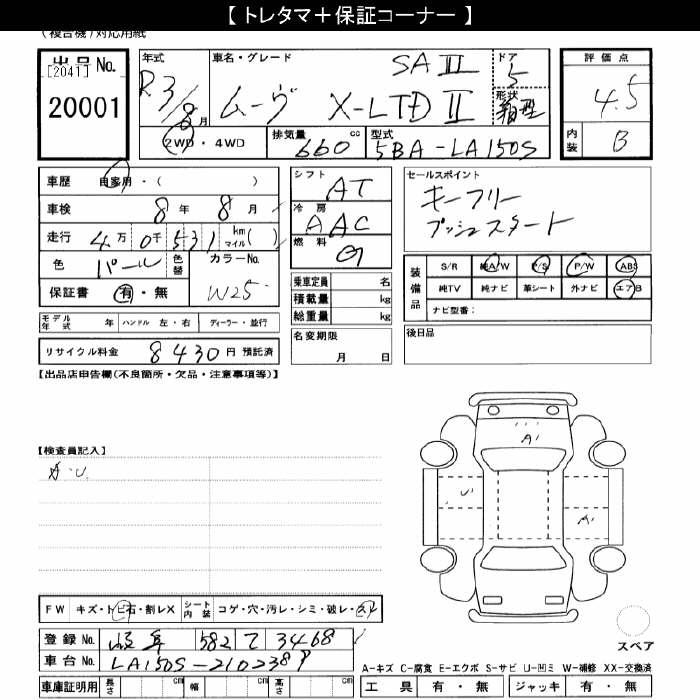 【 トレタマ＋保証コーナー 】
(複合機)対応用紙
出品No.
[2041]
20001
年式 R3/8月
車名・グレード SAⅢ
ムーヴ X-LTD Ⅱ
ドア 5
形状 箱型
評価点 4.5
内装 B
2WD・4WD
排気量 660 cc
型式 5BA-LA150S
車歴 自家用・( )
車検 8年 8月
走行 4万 0千 531 km マイル( )
色 パール 色替
カラーNo. W25
保証書 有・無
シフト AT
冷房 AAC
燃料 G
セールスポイント
キーフリー
プッシュスタート
乗車定員 名
積載量 kg
総重量 kg
装備品
S/R 純A/W P/S P/W ABS
純TV 純ナビ 革シート 外ナビ エアB
ナビ型番：
モデル年式 年 ハンドル 左・右 ディーラー・並行
リサイクル料金 8430 円 預託済
名変期限 月 日
後日品
【出品店申告欄(不良箇所・欠品・注意事項等)】
【検査員記入】
A・U
A1
U
A1
FW キズ・トビ石・割レX
シート内装 コゲ・穴・汚レ・シミ・破レ・スレ
登録No. 岐阜 582 て 3468
車台No. LA150S-2102389
スペア
A-キズ C-腐食 E-エクボ S-サビ U-凹ミ W-補修 XX-交換済
車庫証明用 長さ cm 幅 cm 高さ cm
工具 有・無 ジャッキ 有・無